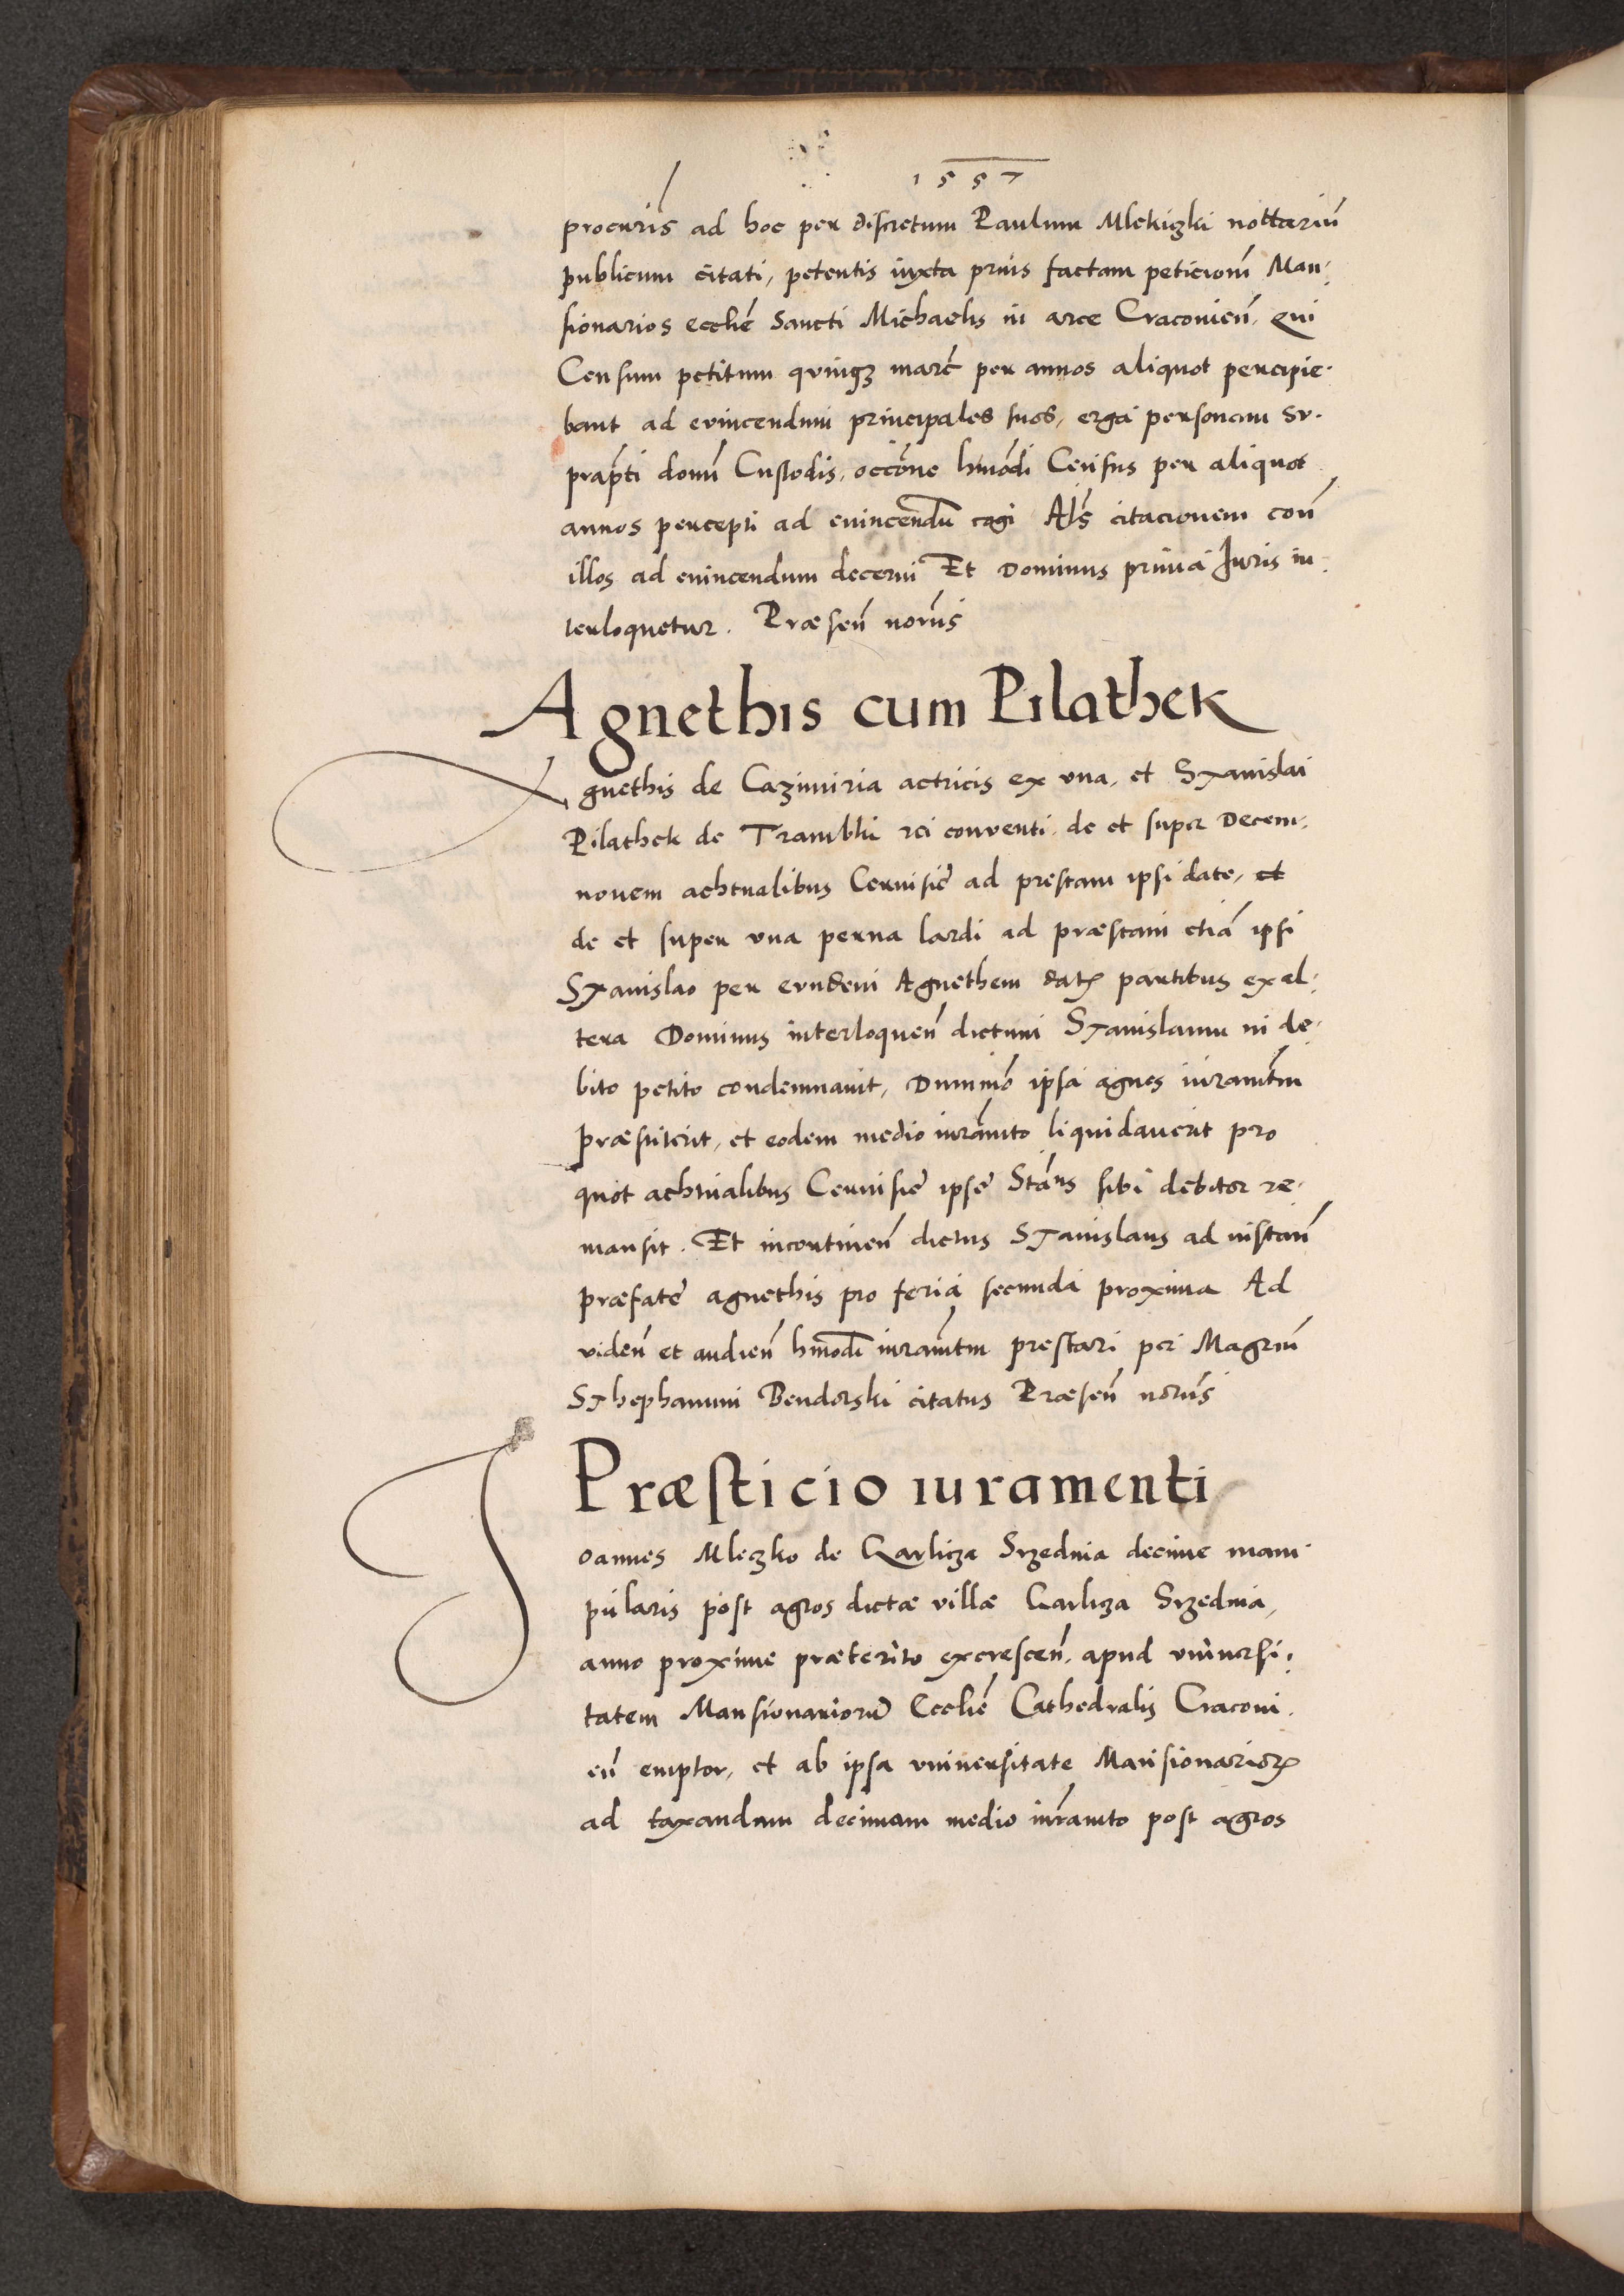 1557
procuris ad hoc per discretum Paulum Mlekiczki nottariū
publicum citati, petentis iuxta prius factam peticionē Man:
sionarios eccliē Sancti Michaelis in arce Cracouieñ. Qui
Censum petitum quinqꝫ marc̄ per annos aliquot percipie:
bant ad euincendum principales suos, erga personam Su:
prap̄ti domī Custodis, occōne hmōdi Census per aliquot
annos percepti ad euincendū cogi Als̄ citacionem con̄
illos ad euincendum decerni Et Dominus prima Iuris in:
terloquetur. Præseñ norīis
Agnethis cum Pilathek
Agnethis de Cazimiria actricis ex vna, et Stanislai
Pilathek de Trambki rei conventi. de et super Decem:
novem achtualibus Ceruisię ad prestam ipsi datę, et
de et super vna perna lardi ad præstam etiā ipsi
Stanislao per eandem Agnethem datꝭ partibus ex al:
tera Dominus interloqueñ dictum Stanislaum in de:
bito petito condemnauit, Dummō ipsa agnes iuramt̄m
præstiterit, et eodem medio iurāmto liquidauerit pro
quot achtualibus Ceruisię ipse Stāus sibi debitor re:
mansit. Et incontineñ dictus Stanislaus ad instañ
præfatę agnethis pro feria secunda proxima Ad
videñ et audieñ hmōdi iuramt̄m prestari per Magrūm
Sthephanum Bendorski citatus Præseñ norīis
Præsticio iuramenti
Joannes Mleczko de Karlicza Srzednia decime mani:
pularis post agros dictæ villæ Karlicza Srzednia,
anno proxime præterito excresceñ. apud vniuersi:
tatem Mansionariorū Eccliē Cathedralis Cracoui:
eñ emptor, et ab ipsa vniuersitate Mansionariorꝭ
ad taxandum decimam medio iurāmto post agros